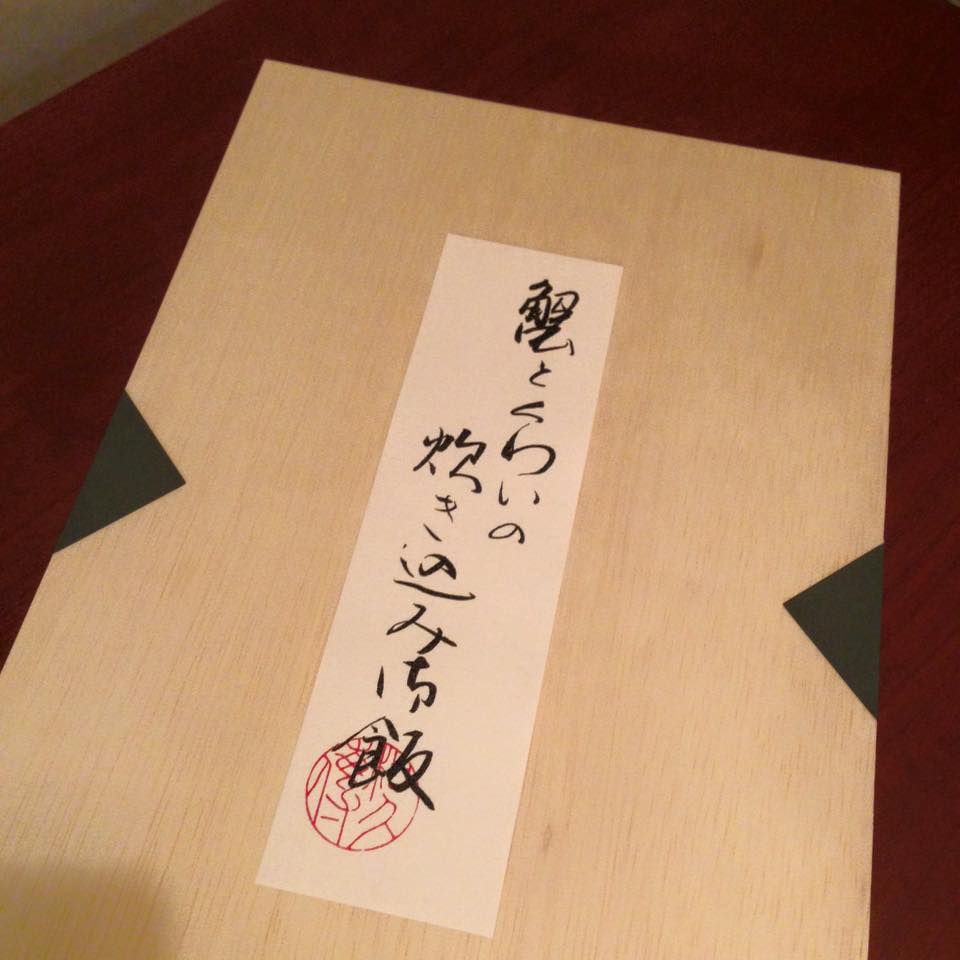 蟹とくわいの
炊き込み御飯